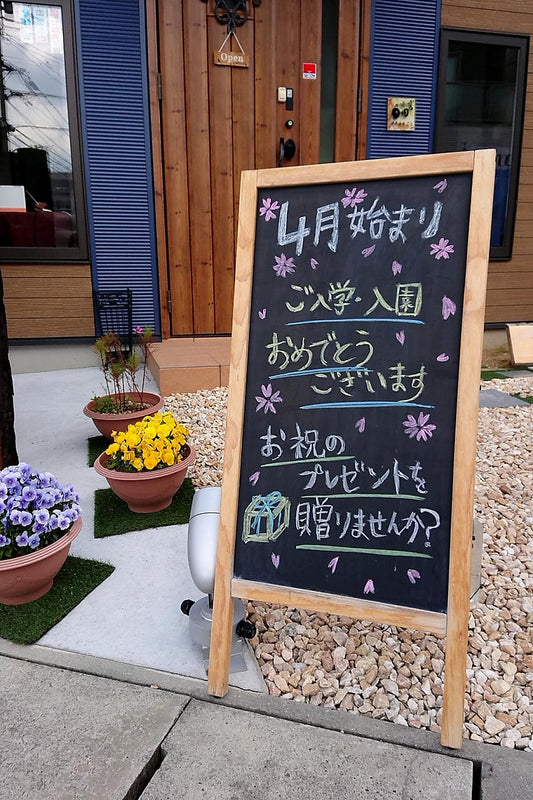 Open
4月始まり
ご入学・入園
おめでとう
ございます
お祝の
プレゼントを
贈りませんか?